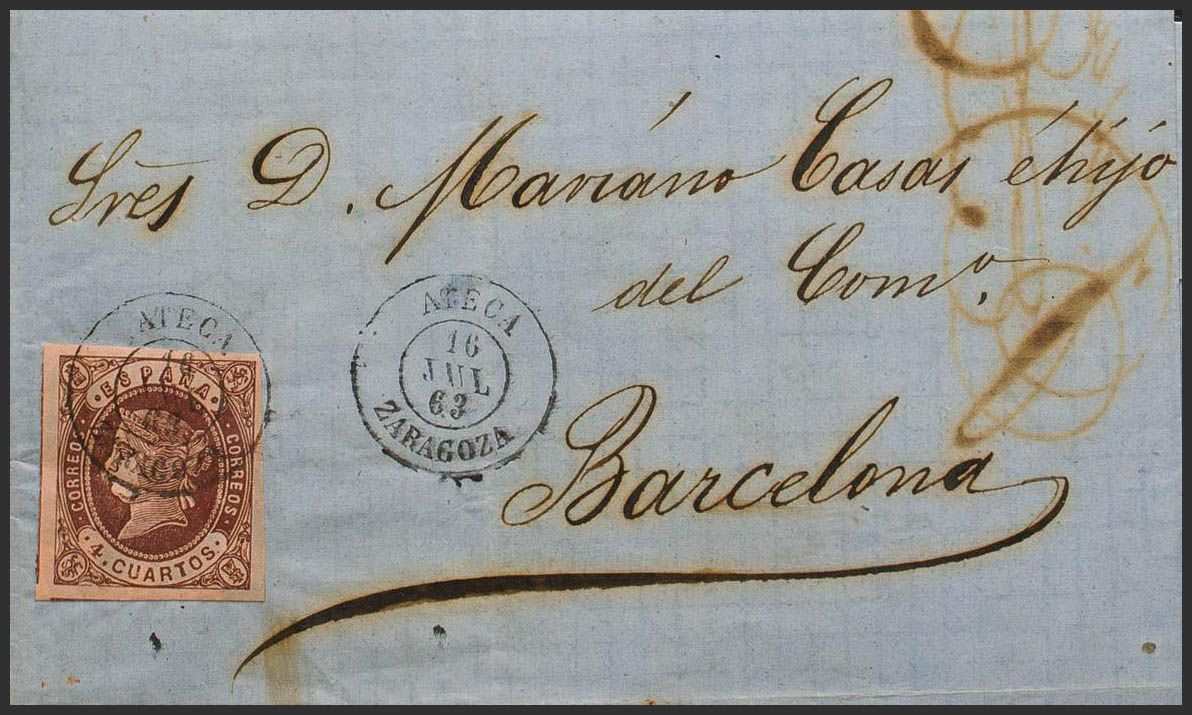 Sres D. Mariáno Casas é hijo
del Como.
Barcelona
ATECA
16
JUL
63
ZARAGOZA
ATECA
16
ESPAÑA
CORREOS
CORREOS
4. CUARTOS.